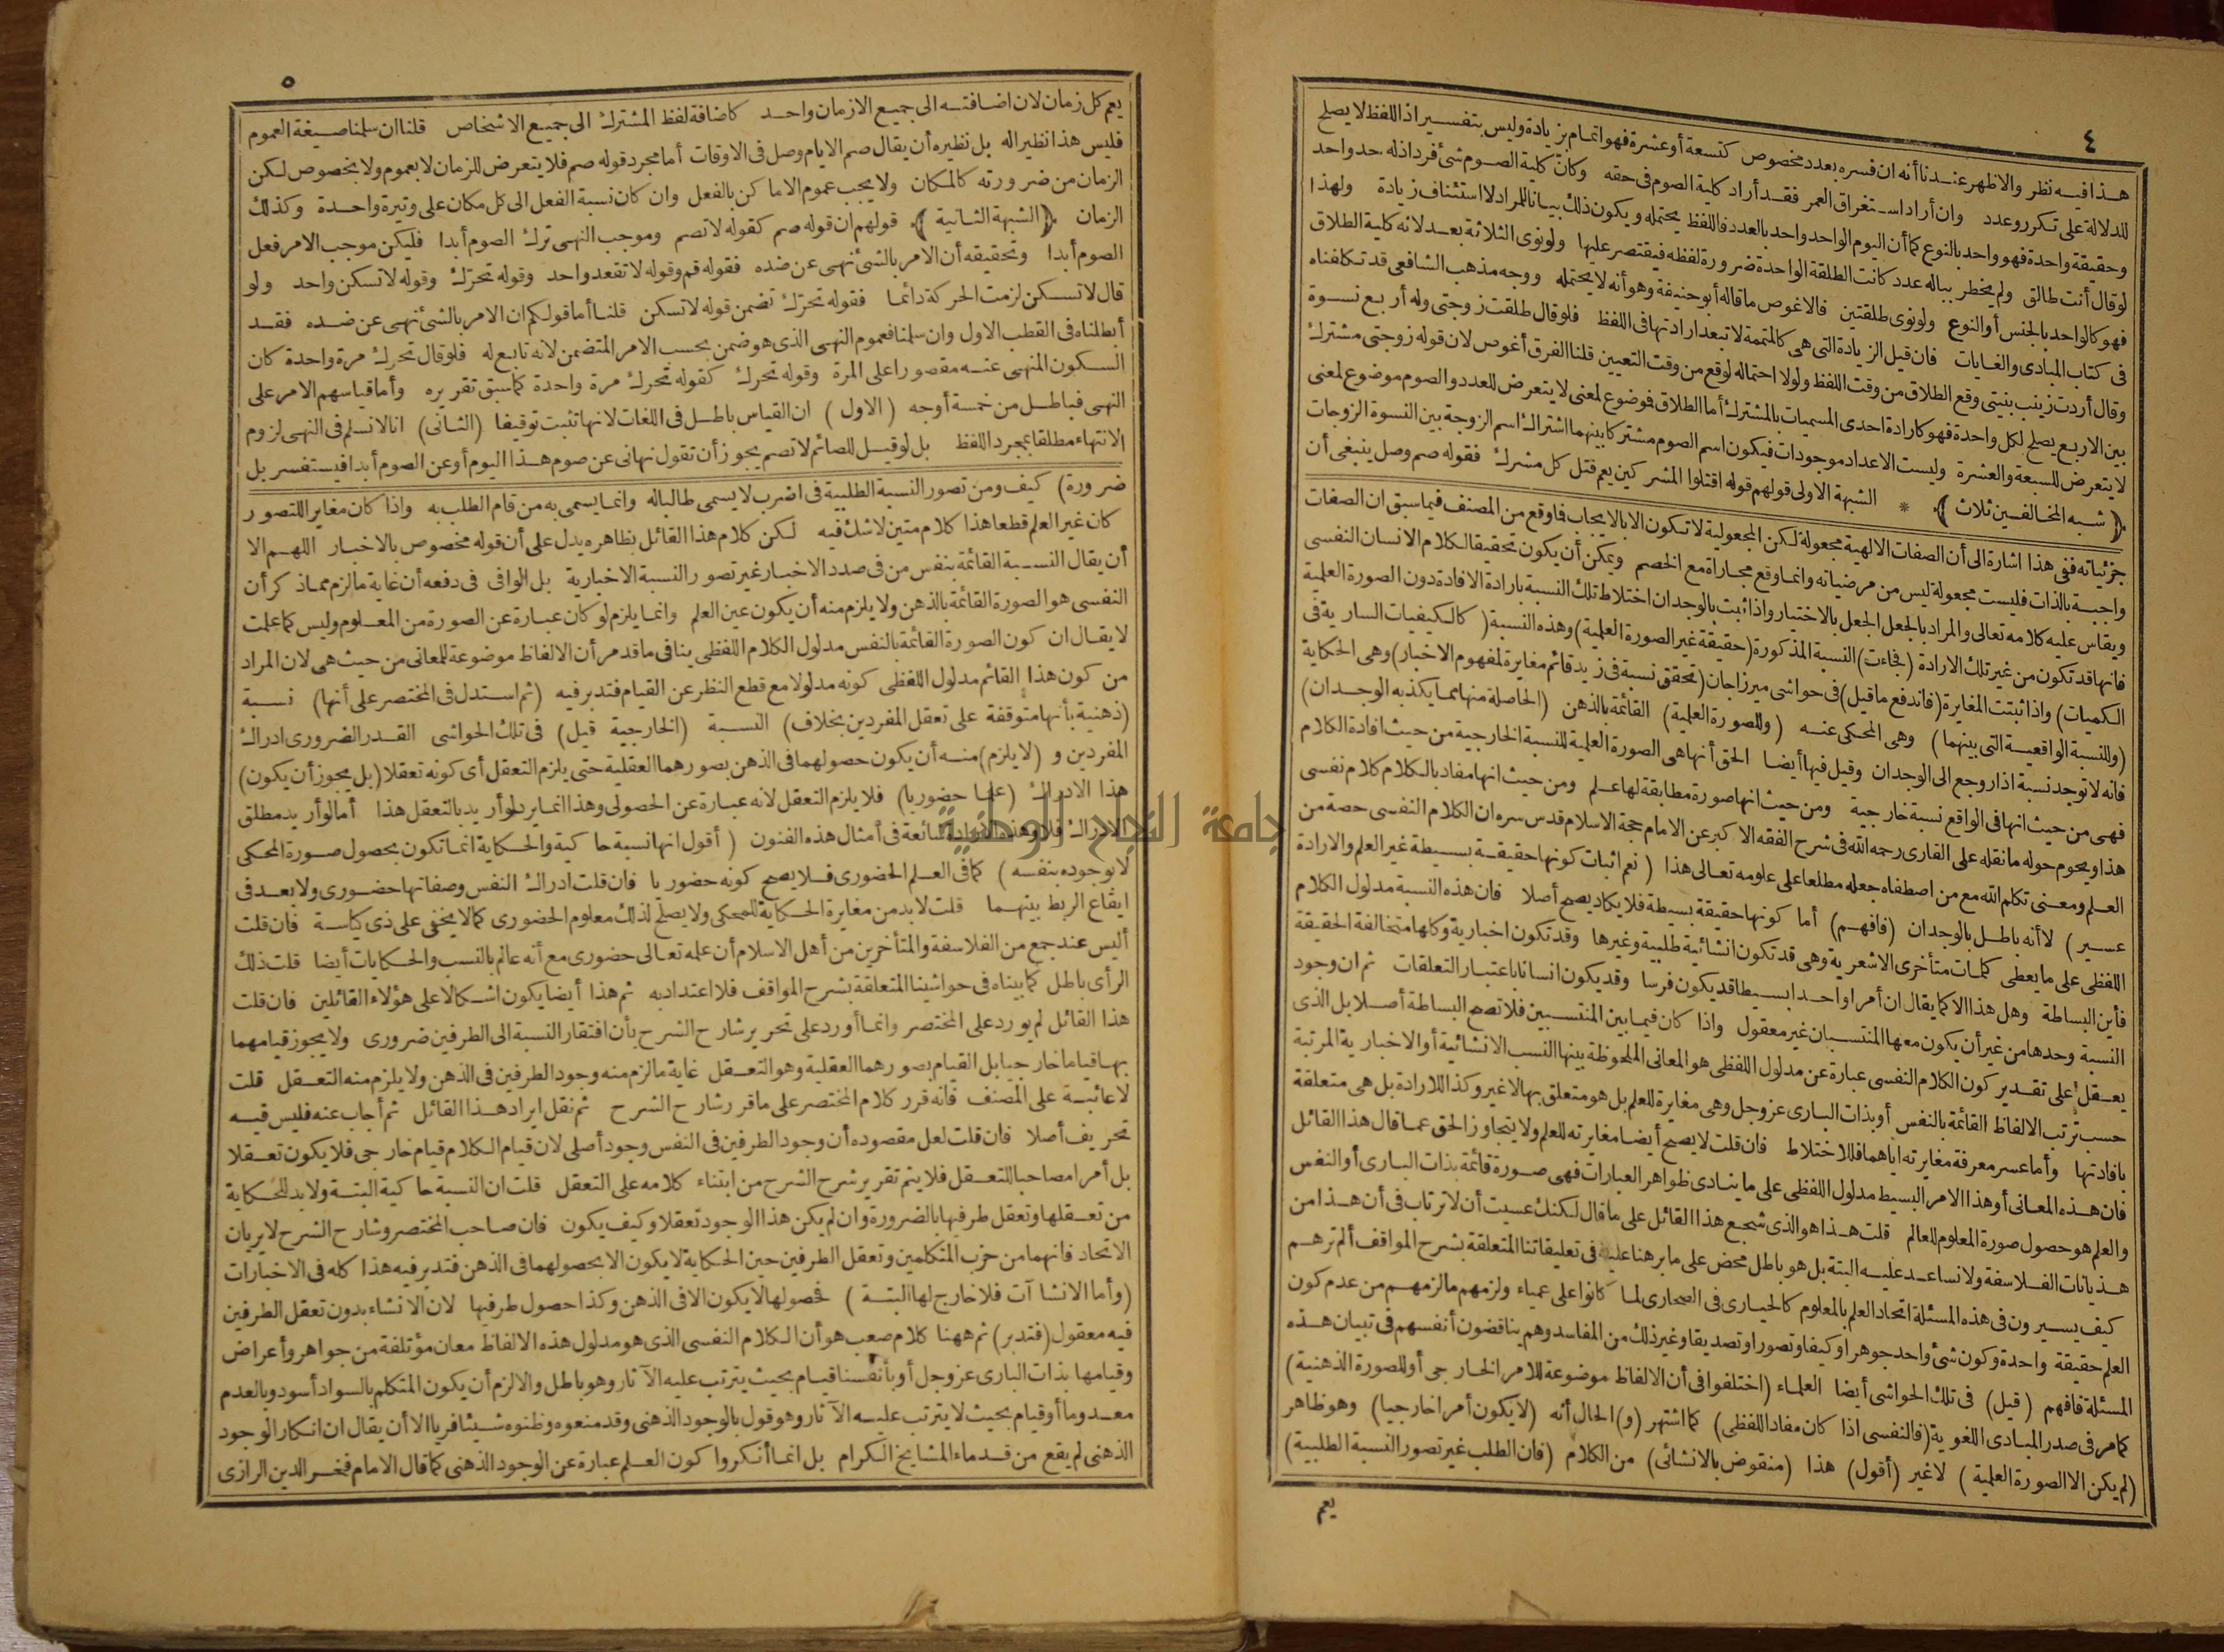 ٤
هذا فيه نظر والاظهر عندنا أنه ان فسره بعدد مخصوص كتسعة أو عشرة فهو اتمام بزيادة وليس بتفسير اذ اللفظ لا يصلح
للدلالة على تكرر وعدد وان أراد استغراق العمر فقد أراد كلية الصوم فى حقه وكان كلية الصوم شئ فرد اذ له حد واحد
وحقيقة واحدة فهو واحد بالنوع كما أن اليوم الواحد واحد بالعدد فاللفظ يحتمله ويكون ذلك بيانا للمراد لا استئناف زيادة ولهذا
لو قال أنت طالق ولم يخطر بباله عدد كانت الطلقة الواحدة ضرورة لفظه فيقتصر عليها ولو نوى الثلاثة بعد لانه كلية الطلاق
فهو كالواحد بالجنس أو النوع ولو نوى طلقتين فالاغوص ما قاله أبو حنيفة وهو أنه لا يحتمله ووجه مذهب الشافعى قد تكلفناه
فى كتاب المبادى والغايات فان قيل الزيادة التى هى كالمتممة لا تبعد ارادتها فى اللفظ فلو قال طلقت زوجتى وله أربع نسوة
وقال أردت زينب بنيتى وقع الطلاق من وقت اللفظ ولولا احتماله لوقع من وقت التعيين قلنا الفرق أغوص لان قوله زوجتى مشترك
بين الاربع يصلح لكل واحدة فهو كارادة احدى المسميات بالمشترك أما الطلاق فموضوع لمعنى لا يتعرض للعدد والصوم موضوع لمعنى
لا يتعرض للسبعة والعشرة وليست الاعداد موجودات فيكون اسم الصوم مشتركا بينهما اشتراك اسم الزوجة بين النسوة الزوجات
﴿شبه المخالفين ثلاث﴾ * الشبهة الاولى قولهم قوله اقتلوا المشركين يعم قتل كل مشرك فقوله صم وصل ينبغى أن
جزئياته ففى هذا اشارة الى أن الصفات الالهية مجعولة لكن المجعولية لا تكون الا بالايجاب فما وقع من المصنف فيما سبق ان الصفات
واجبة بالذات فليست مجعولة ليس من مرضياته وانما وقع مجاراة مع الخصم ويمكن أن يكون تحقيقا لكلام الانسان النفسى
ويقاس عليه كلامه تعالى والمراد بالجعل الجعل بالاختيار واذا ثبت بالوجدان اختلاط تلك النسبة بارادة الافادة دون الصورة العلمية
فانها قد تكون من غير تلك الارادة (فجاءت) النسبة المذكورة (حقيقة غير الصورة العلمية) وهذه النسبة (كالكيفيات السارية فى
الكميات) واذا ثبتت المغايرة (فاندفع ما قيل) فى حواشى ميرزاجان (تحقق نسبة فى زيد قائم مغايرة لمفهوم الاخبار) وهى الحكاية
(وللنسبة الواقعية التى بينهما) وهى المحكى عنه (وللصورة العلمية) القائمة بالذهن (الحاصلة منها مما يكذبه الوجدان)
فانه لا توجد نسبة اذا روجع الى الوجدان وقيل فيها أيضا الحق أنها هى الصورة العلمية للنسبة الخارجية من حيث افادة الكلام
فهى من حيث انها فى الواقع نسبة خارجية ومن حيث انها صورة مطابقة لها علم ومن حيث انها مفاد بالكلام كلام نفسى
هذا ويحوم حوله ما نقله على القارى رحمه الله فى شرح الفقه الاكبر عن الامام حجة الاسلام قدس سره ان الكلام النفسى حصة من
العلم ومعنى تكلم الله مع من اصطفاه جعله مطلعا على علومه تعالى هذا (نعم اثبات كونها حقيقة بسيطة غير العلم والارادة
عسير) لانه باطل بالوجدان (فافهم) أما كونها حقيقة بسيطة فلا يكاد يصح أصلا فان هذه النسبة مدلول الكلام
اللفظى على ما يعطى كلمات متأخرى الاشعرية وهى قد تكون انشائية طلبية وغيرها وقد تكون اخبارية وكلها متخالفة الحقيقة
فأين البساطة وهل هذا الا كما يقال ان أمرا واحدا بسيطا قد يكون فرسا وقد يكون انسانا باعتبار التعلقات ثم ان وجود
النسبة وحدها من غير أن يكون معها المنتسبان غير معقول واذا كان فيما بين المنتسبين فلا تصح البساطة أصلا بل الذى
يعقل على تقدير كون الكلام النفسى عبارة عن مدلول اللفظى هو المعانى الملحوظة بينها النسب الانشائية أو الاخبارية المرتبة
حسب ترتب الالفاظ القائمة بالنفس أو بذات البارى عز وجل وهى مغايرة للعلم بل هو متعلق بها لا غير وكذا للارادة بل هى متعلقة
بافادتها وأما عسر معرفة مغايرته اياهما فللاختلاط فان قلت لا يصح أيضا مغايرته للعلم ولا يتجاوز الحق عما قال هذا القائل
فان هذه المعانى أو هذا الامر البسيط مدلول اللفظى على ما ينادى ظواهر العبارات فهى صورة قائمة بذات البارى أو النفس
والعلم هو حصول صورة المعلوم للعالم قلت هذا هو الذى شجع هذا القائل على ما قال لكنك عسيت أن لا ترتاب فى أن هذا من
هذيانات الفلاسفة ولا نساعد عليه البتة بل هو باطل محض على ما برهنا عليه فى تعليقاتنا المتعلقة بشرح المواقف ألم ترهم
كيف يسيرون فى هذه المسئلة اتحاد العلم بالمعلوم كالحيارى فى الصحارى لما كانوا على عمياء ولزمهم ما لزمهم من عدم كون
العلم حقيقة واحدة وكون شئ واحد جوهرا وكيفا وتصورا وتصديقا وغير ذلك من المفاسد وهم يناقضون أنفسهم فى تبيان هذه
المسئلة فافهم (قيل) فى تلك الحواشى أيضا العلماء (اختلفوا فى أن الالفاظ موضوعة للامر الخارجى أو للصورة الذهنية)
كما مر فى صدر المبادى اللغوية (فالنفسى اذا كان مفاد اللفظى) كما اشتهر (و) الحال أنه (لا يكون أمرا خارجيا) وهو ظاهر
(لم يكن الا الصورة العلمية) لا غير (أقول) هذا (منقوض بالانشائى) من الكلام (فان الطلب غير تصور النسبة الطلبية)
يعم
٥
يعم كل زمان لان اضافته الى جميع الازمان واحد كاضافة لفظ المشترك الى جميع الاشخاص قلنا ان سلمنا صيغة العموم
فليس هذا نظيرا له بل نظيره أن يقال صم الايام وصل فى الاوقات أما مجرد قوله صم فلا يتعرض للزمان لا بعموم ولا بخصوص لكن
الزمان من ضرورته كالمكان ولا يجب عموم الاماكن بالفعل وان كان نسبة الفعل الى كل مكان على وتيرة واحدة وكذلك
الزمان ﴿الشبهة الثانية﴾ قولهم ان قوله صم كقوله لا تصم وموجب النهى ترك الصوم أبدا فليكن موجب الامر فعل
الصوم أبدا وتحقيقه أن الامر بالشئ نهى عن ضده فقوله قم وقوله لا تقعد واحد وقوله تحرك وقوله لا تسكن واحد ولو
قال لا تسكن لزمت الحركة دائما فقوله تحرك تضمن قوله لا تسكن قلنا أما قولكم ان الامر بالشئ نهى عن ضده فقد
أبطلناه فى القطب الاول وان سلمنا فعموم النهى الذى هو ضمن بحسب الامر المتضمن لانه تابع له فلو قال تحرك مرة واحدة كان
السكون المنهى عنه مقصورا على المرة وقوله تحرك كقوله تحرك مرة واحدة كما سبق تقريره وأما قياسهم الامر على
النهى فباطل من خمسة أوجه (الاول) ان القياس باطل فى اللغات لانها تثبت توقيفا (الثانى) انا لا نسلم فى النهى لزوم
الانتهاء مطلقا بمجرد اللفظ بل لو قيل للصائم لا تصم يجوز أن تقول نهانى عن صوم هذا اليوم أو عن الصوم أبدا فيستفسر بل
ضرورة) كيف ومن تصور النسبة الطلبية فى اضرب لا يسمى طالبا له وانما يسمى به من قام الطلب به واذا كان مغايرا للتصور
كان غير العلم قطعا هذا كلام متين لا شك فيه لكن كلام هذا القائل بظاهره يدل على أن قوله مخصوص بالاخبار اللهم الا
أن يقال النسبة القائمة بنفس من فى صدد الاخبار غير تصور النسبة الاخبارية بل الوافى فى دفعه أن غاية ما لزم مما ذكر أن
النفسى هو الصورة القائمة بالذهن ولا يلزم منه أن يكون عين العلم وانما يلزم لو كان عبارة عن الصورة من المعلوم وليس كما علمت
لا يقال ان كون الصورة القائمة بالنفس مدلول الكلام اللفظى ينافى ما قد مر أن الالفاظ موضوعة للمعانى من حيث هى لان المراد
من كون هذا القائم مدلول اللفظى كونه مدلولا مع قطع النظر عن القيام فتدبر فيه (ثم استدل فى المختصر على أنها) نسبة
(ذهنية بأنها متوقفة على تعقل المفردين بخلاف) النسبة (الخارجية قيل) فى تلك الحواشى القدر الضرورى ادراك
المفردين و (لا يلزم) منه أن يكون حصولهما فى الذهن بصورهما العقلية حتى يلزم التعقل أى كونه تعقلا (بل يجوز أن يكون)
هذا الادراك (علما حضوريا) فلا يلزم التعقل لانه عبارة عن الحصولى وهذا انما يرد لو أريد بالتعقل هذا أما لو أريد مطلق
الادراك فلا وهذه الارادة شائعة فى أمثال هذه الفنون (أقول انها نسبة حاكية والحكاية انما تكون بحصول صورة المحكى
لا بوجوده بنفسه) كما فى العلم الحضورى فلا يصح كونه حضوريا فان قلت ادراك النفس وصفاتها حضورى ولا بعد فى
ايقاع الربط بينهما قلت لا بد من مغايرة الحكاية للمحكى ولا يصلح لذلك معلوم الحضورى كما لا يخفى على ذى كياسة فان قلت
أليس عند جمع من الفلاسفة والمتأخرين من أهل الاسلام أن علمه تعالى حضورى مع أنه عالم بالنسب والحكايات أيضا قلت ذلك
الرأى باطل كما بيناه فى حواشينا المتعلقة بشرح المواقف فلا اعتداد به ثم هذا أيضا يكون اشكالا على هؤلاء القائلين فان قلت
هذا القائل لم يورد على المختصر وانما أورد على تحرير شارح الشرح بأن افتقار النسبة الى الطرفين ضرورى ولا يجوز قيامهما
بها قياما خارجيا بل القيام بصورهما العقلية وهو التعقل غاية ما لزم منه وجود الطرفين فى الذهن ولا يلزم منه التعقل قلت
لا عائبة على المصنف فانه قرر كلام المختصر على ما قرر شارح الشرح ثم نقل ايراد هذا القائل ثم أجاب عنه فليس فيه
تحريف أصلا فان قلت لعل مقصوده أن وجود الطرفين فى النفس وجود أصلى لان قيام الكلام قيام خارجى فلا يكون تعقلا
بل أمرا مصاحبا للتعقل فلا يتم تقرير شرح الشرح من ابتناء كلامه على التعقل قلت ان النسبة حاكية البتة ولا بد للحكاية
من تعقلها وتعقل طرفيها بالضرورة وان لم يكن هذا الوجود تعقلا وكيف يكون فان صاحب المختصر وشارح الشرح لا يريان
الاتحاد فانهما من حزب المتكلمين وتعقل الطرفين حين الحكاية لا يكون الا بحصولهما فى الذهن فتدبر فيه هذا كله فى الاخبارات
(وأما الانشاآت فلا خارج لها البتة) فحصولها لا يكون الا فى الذهن وكذا حصول طرفيها لان الانشاء بدون تعقل الطرفين
فيه معقول (فتدبر) ثم ههنا كلام صعب هو أن الكلام النفسى الذى هو مدلول هذه الالفاظ معان مؤتلفة من جواهر وأعراض
وقيامها بذات البارى عز وجل أو بأنفسنا قيام بحيث يترتب عليه الآثار وهو باطل والا لزم أن يكون المتكلم بالسواد أسود وبالعدم
معدوما أو قيام بحيث لا يترتب عليه الآثار وهو قول بالوجود الذهنى وقد منعوه وظنوه شيئا فريا الا أن يقال ان انكار الوجود
الذهنى لم يقع من قدماء المشايخ الكرام بل انما أنكروا كون العلم عبارة عن الوجود الذهنى كما قال الامام فخر الدين الرازى
جامعة النجاح الوطنية